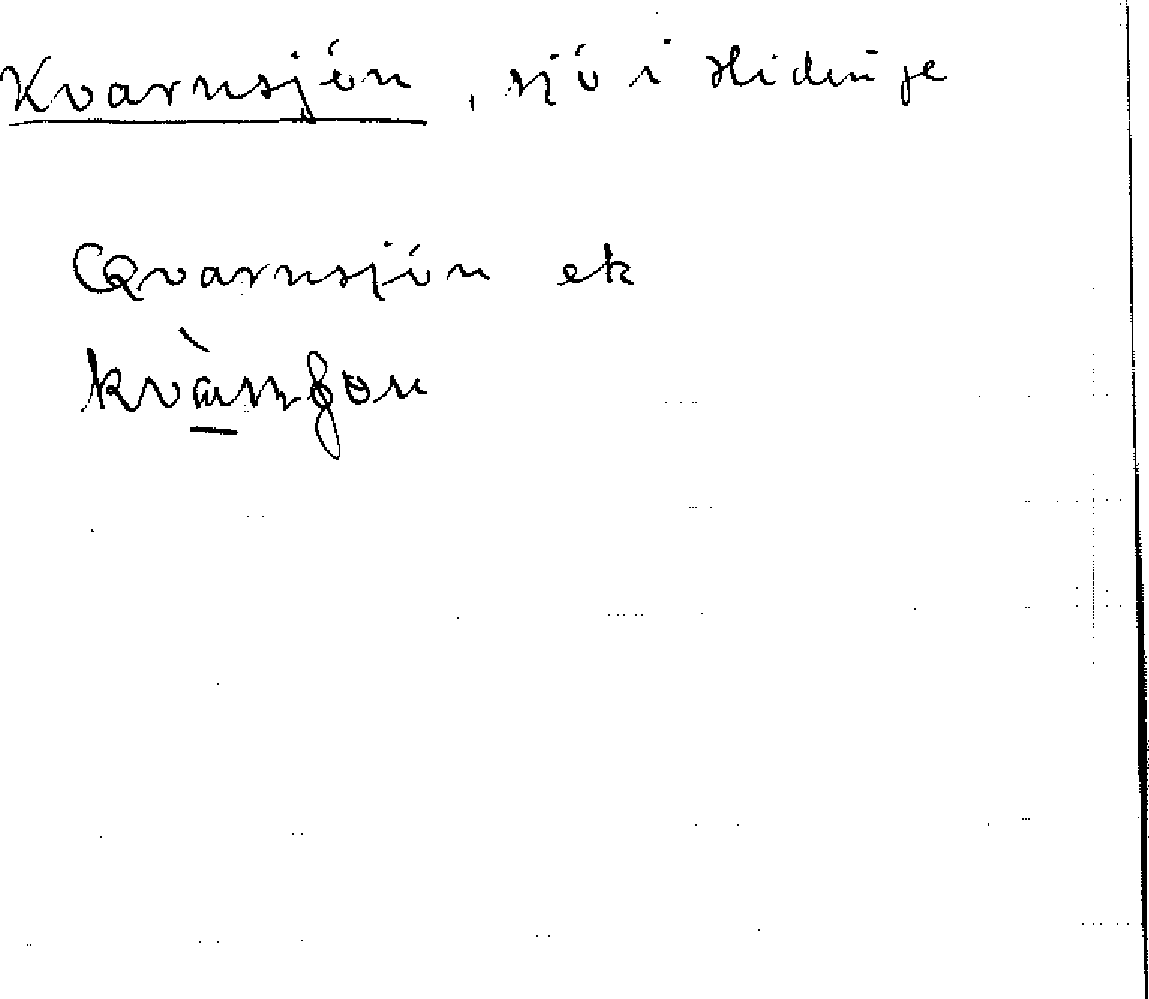 Kvarnsjön, sjö i Hidinge
Qvarnsjön ek